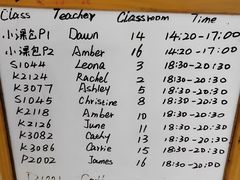 Class Teacher Classroom Time
小课包P1 Dawn 14 14:20-17:00
小课包P2 Amber 16 14:20-17:00
S1044 Leona 3 18:30-20:30
K2124 Rachel 2 18:30-20:30
K3077 Ashley 5 18:30-20:30
S1045 Christine 8 18:30-20:30
K2118 Amber 10 18:30-20:30
K2126 June 11 18:30-20:30
K3082 Cathy 13 18:30-20:30
K3086 Carrie 15 18:30-20:30
P2002 James 16 18:30-20:00